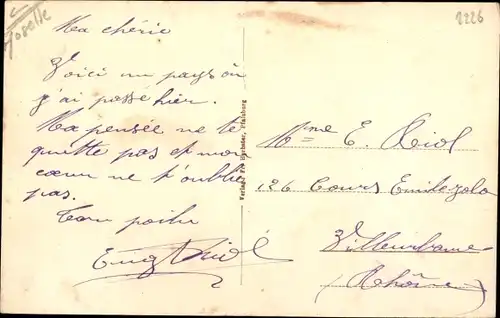 Moselle
2226
Ma chérie
Voici un pays où
j'ai passé hier.
Ma pensée ne te
quitte pas et mon
cœur ne t'oublie
pas.
Ton poilu
Eug Riol
Verlag Fre Pfalzburg
Mme E. Riol
126 Cours Emile Zola
Villeurbanne
(Rhône)